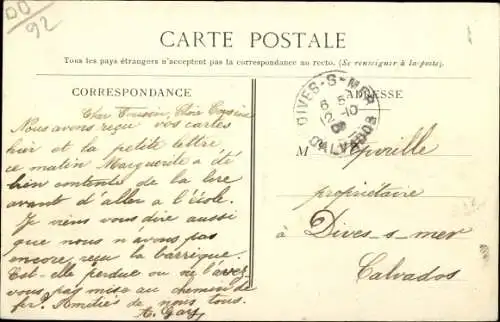 DD
92
CARTE POSTALE
Tous les pays étrangers n'acceptent pas la correspondance au recto. (Se renseigner à la poste).
CORRESPONDANCE
Cher Cousin, Chère Cousine
Nous avons reçu vos cartes
hier et la petite lettre
ce matin Marguerite a été
bien contente de la lire
avant d'aller à l'école.
Je viens vous dire aussi
que nous n'avons pas
encore reçu la barrique.
Est-elle perdue ou ne l'avez
vous pas mise au chemin de
fer? Amitiés de nous tous.
ADRESSE
DIVES-S-MER
12 -10
CALVADOS
M
propriétaire
à Dives-s-mer
Calvados